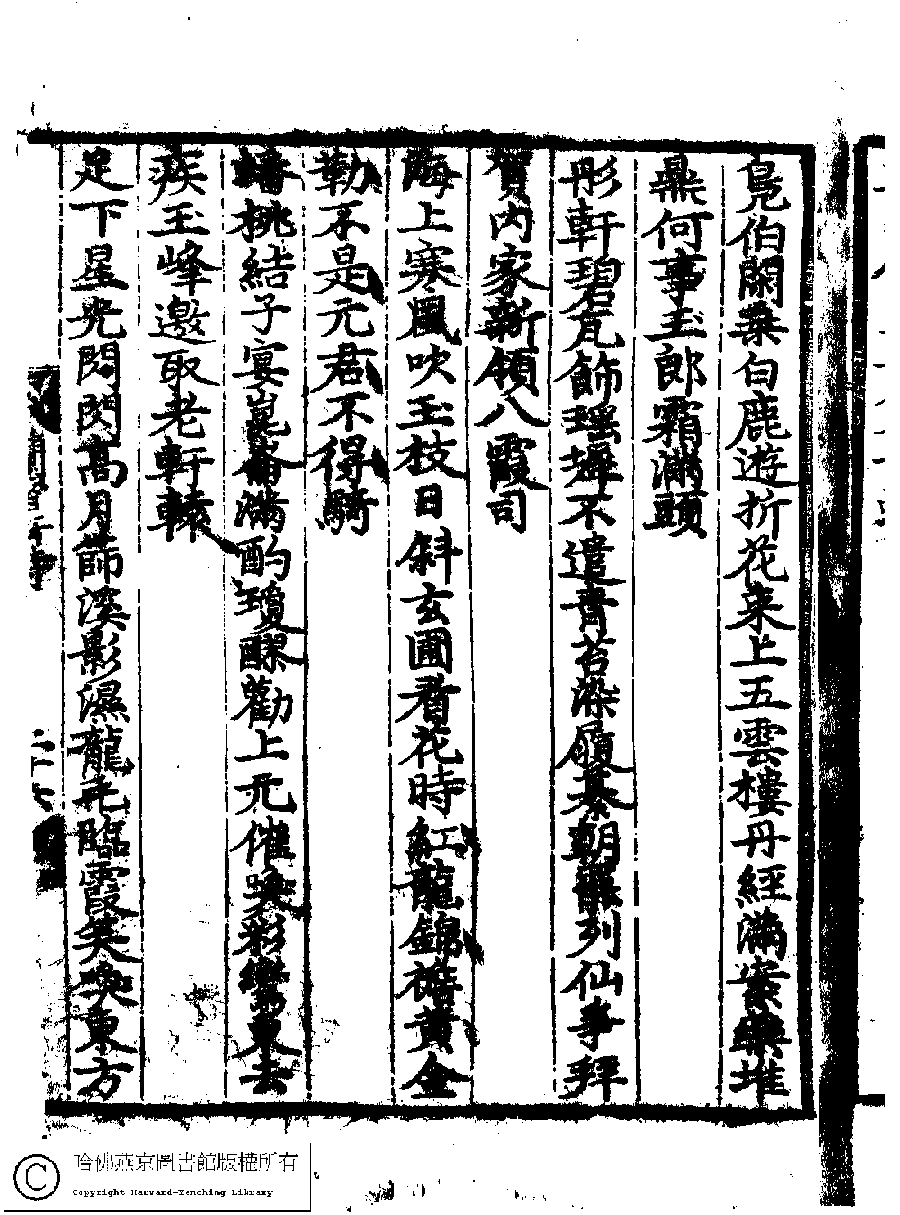 鳧伯閑乘白鹿遊折花來上五雲樓丹經滿案藥堆
鼎何事玉郎霜滿頭
彤軒碧瓦飾瑤墀不遣青苔染履綦朝罷列仙爭拜
賀內家新領八霞司
海上寒風吹玉枝日斜玄圃看花時紅龍錦襜黃金
勒不是元君不得騎
蟠桃結子宴崑崙滿酌瓊醪勸上元催喚彩鸞東去
疾玉峰邀取老軒轅
足下星光閃閃高月篩溪影濕龍毛臨霞笑喚東方
哈佛燕京圖書館版權所有
Copyright Harvard-Yenching Library